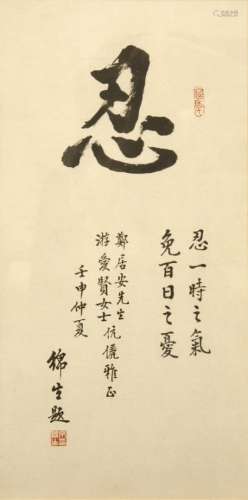 忍
忍一時之氣
免百日之憂
鄭居安先生
游愛賢女士伉儷雅正
壬申仲夏
錦生題